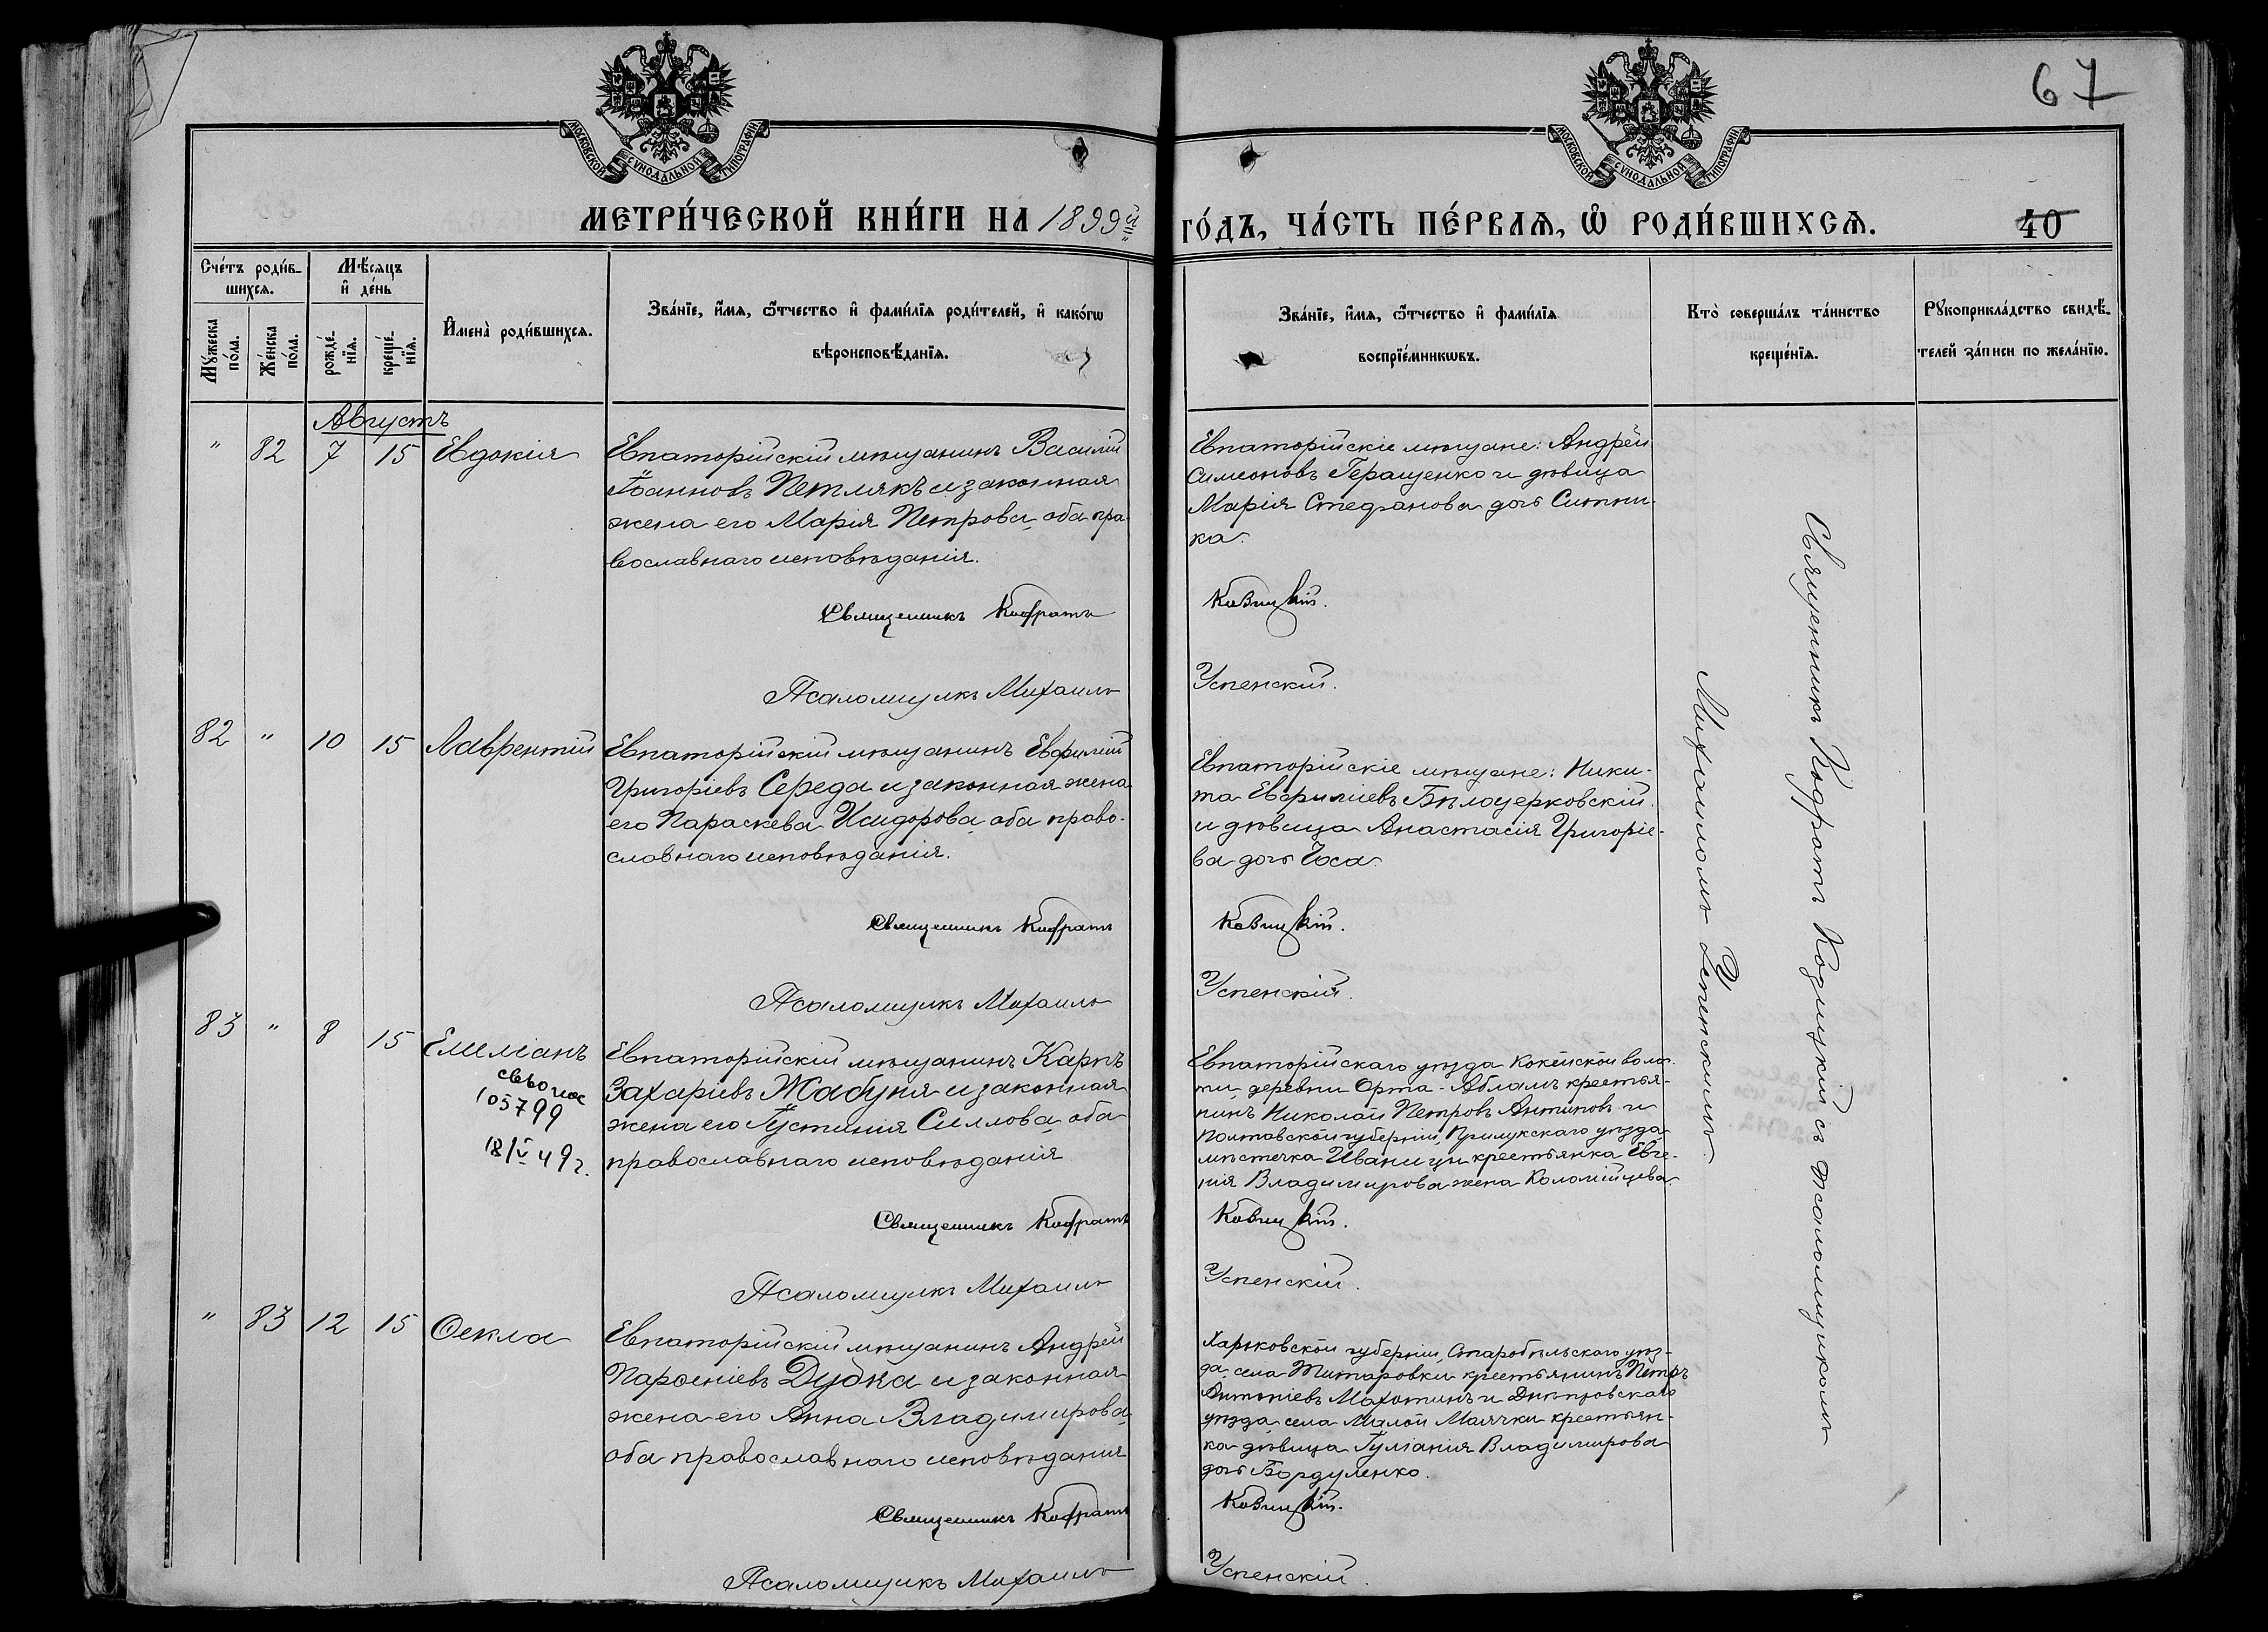 67
МОСКОВСКОЙ СѴНОДАЛЬНОЙ ТИПОГРАФІИ
МОСКОВСКОЙ СѴНОДАЛЬНОЙ ТИПОГРАФІИ
МЕТРИ́ЧЕСКОЙ КНИ́ГИ НА 1899 й
ГО́ДЪ, ЧА́СТЬ ПЕ́РВАЯ, Ѡ РОДИ́ВШИХСѦ.
40
Сче́тъ роди́в-
шихсѧ.
Мꙋ́жеска по́ла.
Же́нска по́ла.
Мѣ́сѧцъ и҆ де́нь
рожде́-нїѧ.
креще́-нїѧ.
И҆мена̀ роди́вшихсѧ.
Зва́нїе, и҆́мѧ, ѻ҆́тчество и҆ фами́лїѧ роди́телей, и҆ како́гѡ
вѣроисповѣ́данїѧ.
Зва́нїе, и҆́мѧ, ѻ҆́тчество и҆ фами́лїѧ
воспрїе́мникѡвъ.
Кто̀ соверша́лъ та́инство
креще́нїѧ.
Рꙋкоприкла́дство свидѣ́-
телей за́писи по жела́нїю.
Августъ
" 82 7 15 Евдокія
Евпаторійскій мѣщанинъ Василій
Іоанновъ Петлякъ и законная
жена его Марія Петрова, оба пра-
вославнаго исповѣданія.
Священникъ Кодратъ
Псаломщикъ Михаилъ
Евпаторійскіе мѣщане: Андрей
Симеоновъ Геращенко и дѣвица
Марія Стефанова дочь Ситни-
ка.
Козицкій.
Успенскій.
82 " 10 15 Лаврентій
Евпаторійскій мѣщанинъ Евфимій
Григоріевъ Середа и законная жена
его Параскева Исидорова, оба право-
славнаго исповѣданія.
Священникъ Кодратъ
Псаломщикъ Михаилъ
Евпаторійскіе мѣщане: Ники-
та Евфиміевъ Бѣлоцерковскій
и дѣвица Анастасія Григоріе-
ва дочь Коса.
Козицкій.
Успенскій.
83 " 8 15 Емиліанъ
105799
18/V 49 г.
Евпаторійскій мѣщанинъ Карпъ
Захаріевъ Жабуня и законная
жена его Іустинія Силлова, оба
православнаго исповѣданія
Священникъ Кодратъ
Псаломщикъ Михаилъ
Евпаторійскаго уѣзда Кокейской воло-
сти, деревни Орта-Абламъ крестья-
нинъ Николай Петровъ Антиповъ и
Полтавской губерніи, Прилукскаго уѣзда,
мѣстечка Иваницы крестьянка Евге-
нія Владимирова жена Коломійцева
Козицкій.
Успенскій.
" 83 12 15 Ѳекла
Евпаторійскій мѣщанинъ Андрей
Парѳеніевъ Дубка и законная
жена его Анна Владимирова,
оба православнаго исповѣданія
Священникъ Кодратъ
Псаломщикъ Михаилъ
Харьковской губерніи, Старобѣльскаго уѣз-
да, села Титаровки крестьянинъ Петръ
Антоніевъ Махотинъ и Днѣпровскаго
уѣзда, села Малой Маячки крестьян-
ка дѣвица Іуліанія Владимирова
дочь Бордуленко.
Козицкій.
Успенскій.
Священникъ Кодратъ Козицкій съ псаломщикомъ
Михаиломъ Успенскимъ.